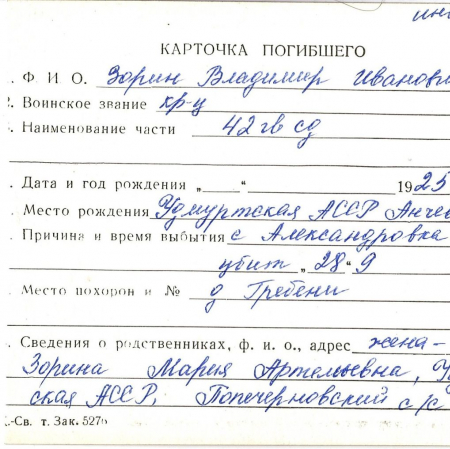 КАРТОЧКА ПОГИБШЕГО
. Ф И О. Зорин Владимир Иванови
2. Воинское звание кр-ц
. Наименование части 42 гв сд
. Дата и год рождения „ “ 1925
. Место рождения Удмуртская АССР Анче
. Причина и время выбытия с Александровка
убит „28“ 9
. Место похорон и № д Гребени
. Сведения о родственниках, ф. и. о., адрес жена -
Зорина Мария Артемьевна, У
ская АССР, Попечерновский с/с
.-Св. т. Зак. 527